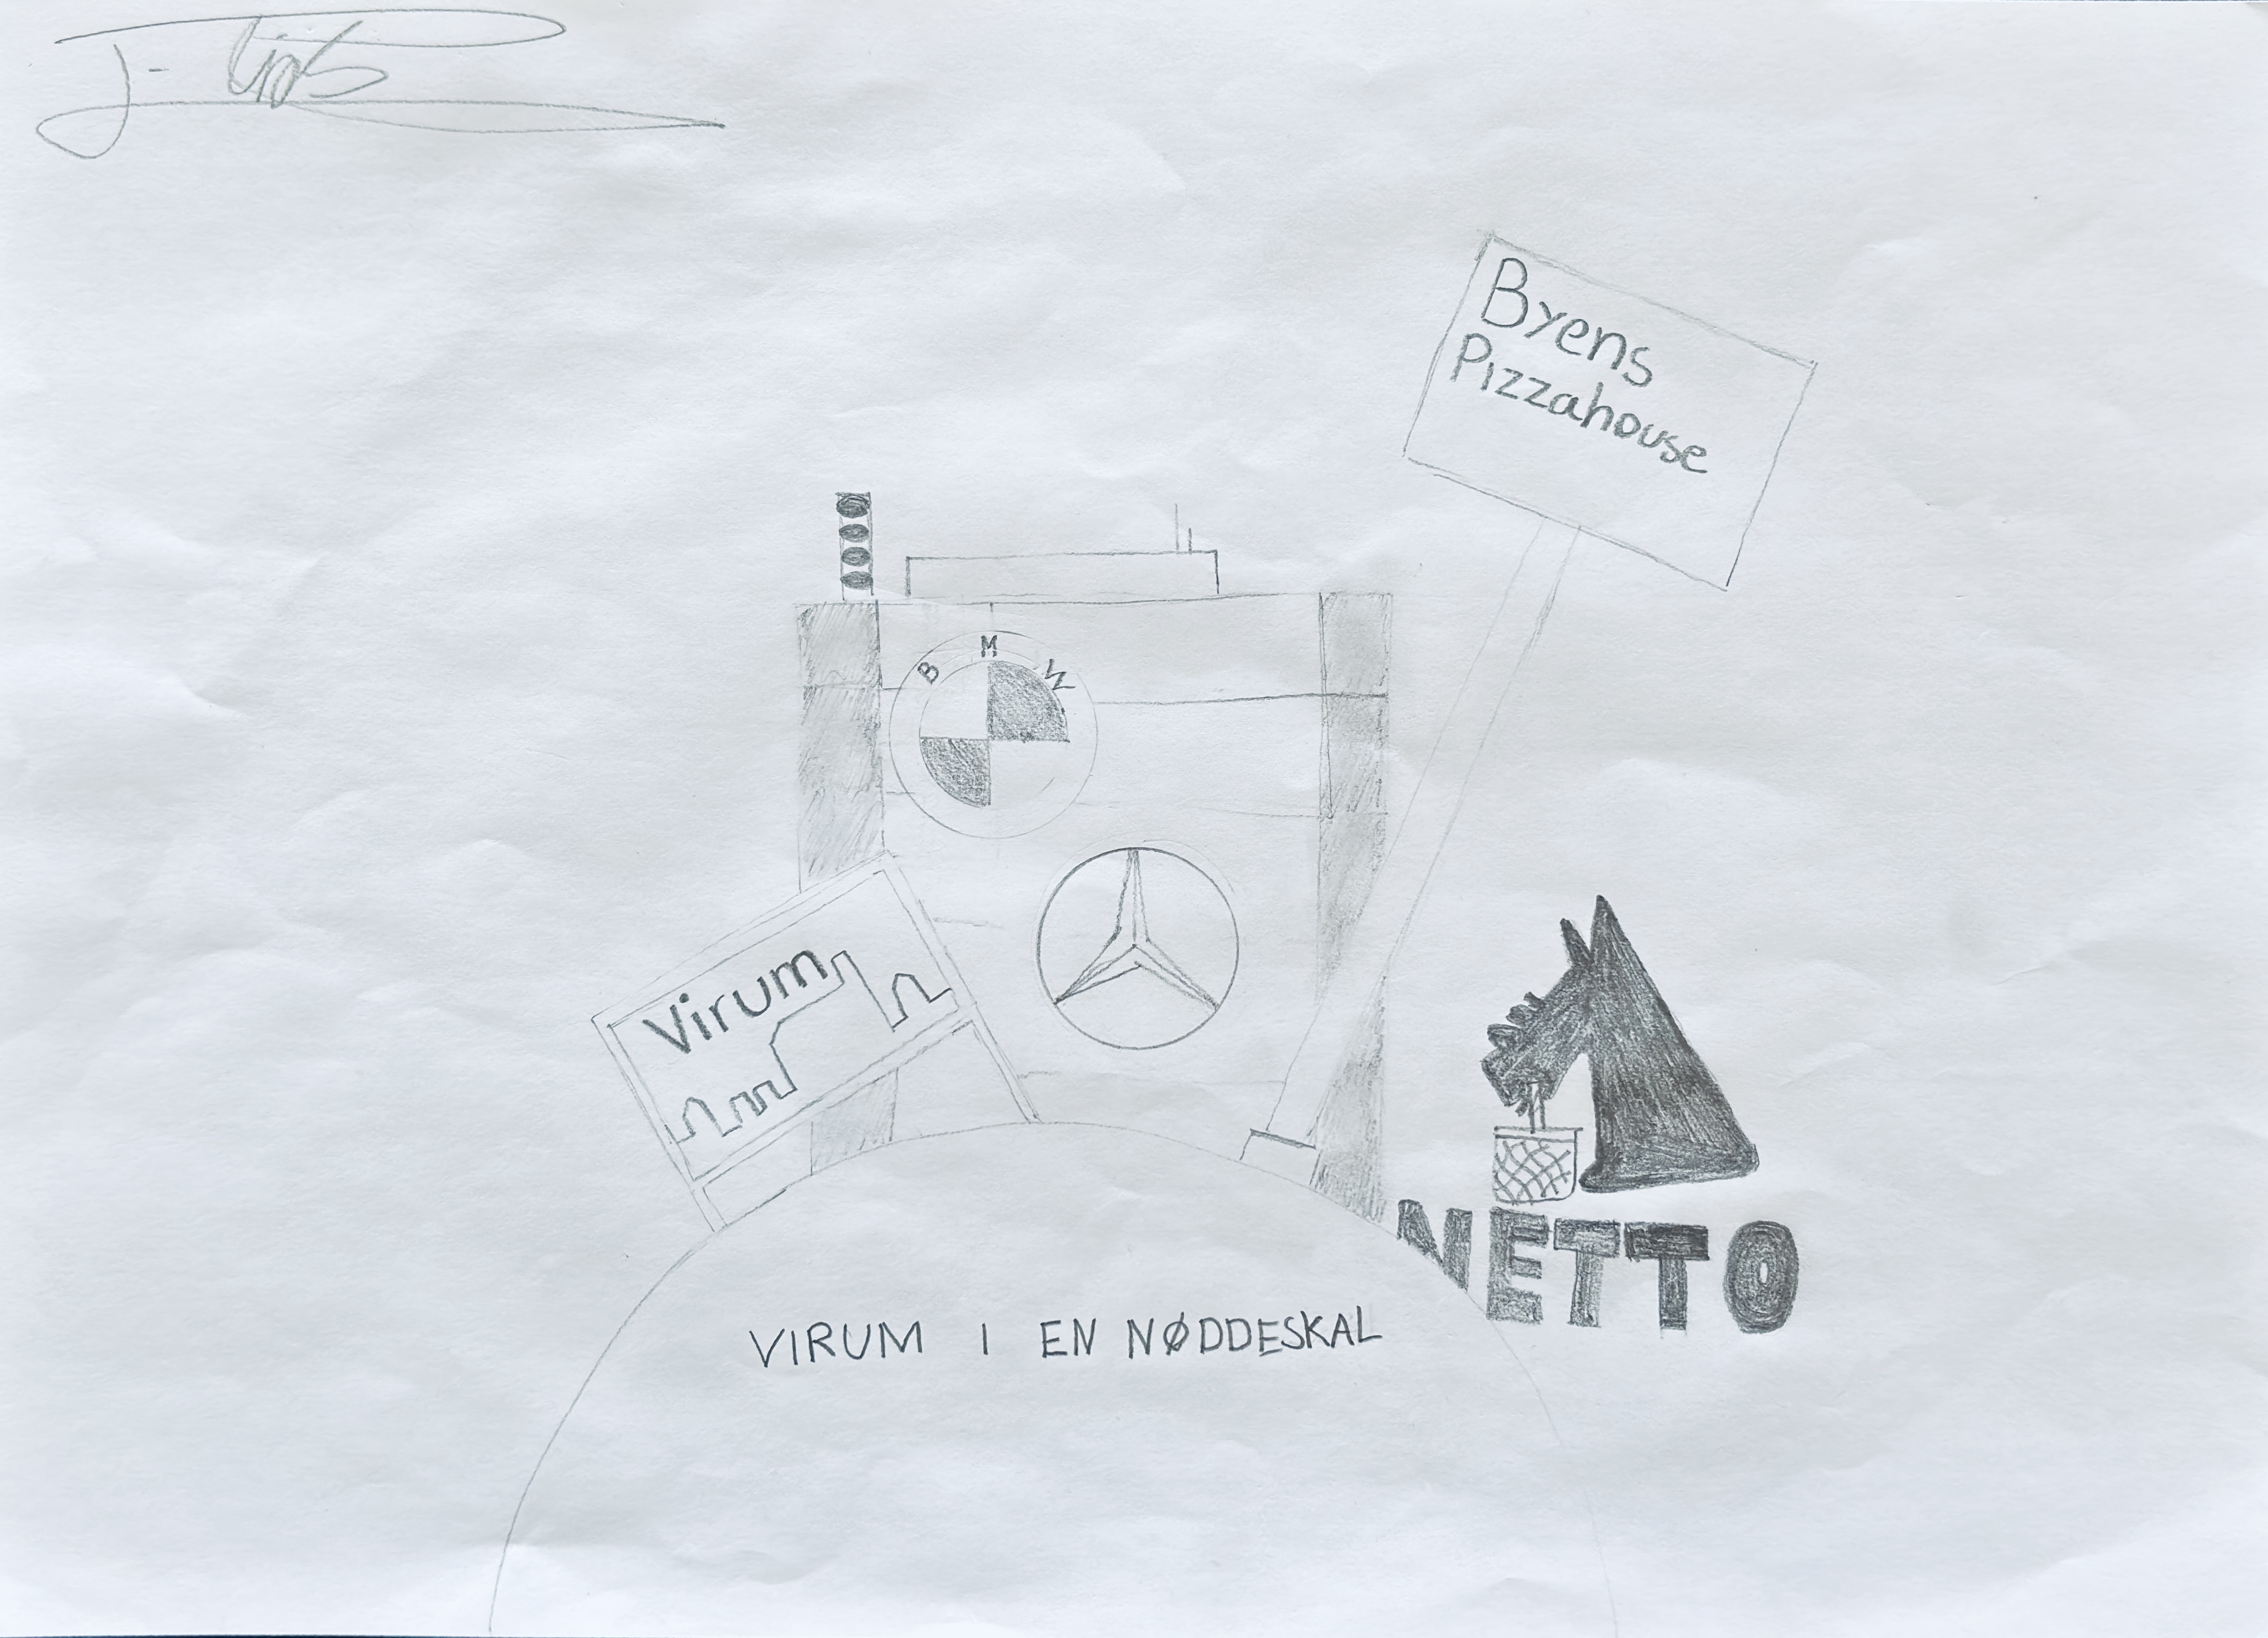 Byens
Pizzahouse
B M W
Virum
NETTO
VIRUM I EN NØDDESKAL